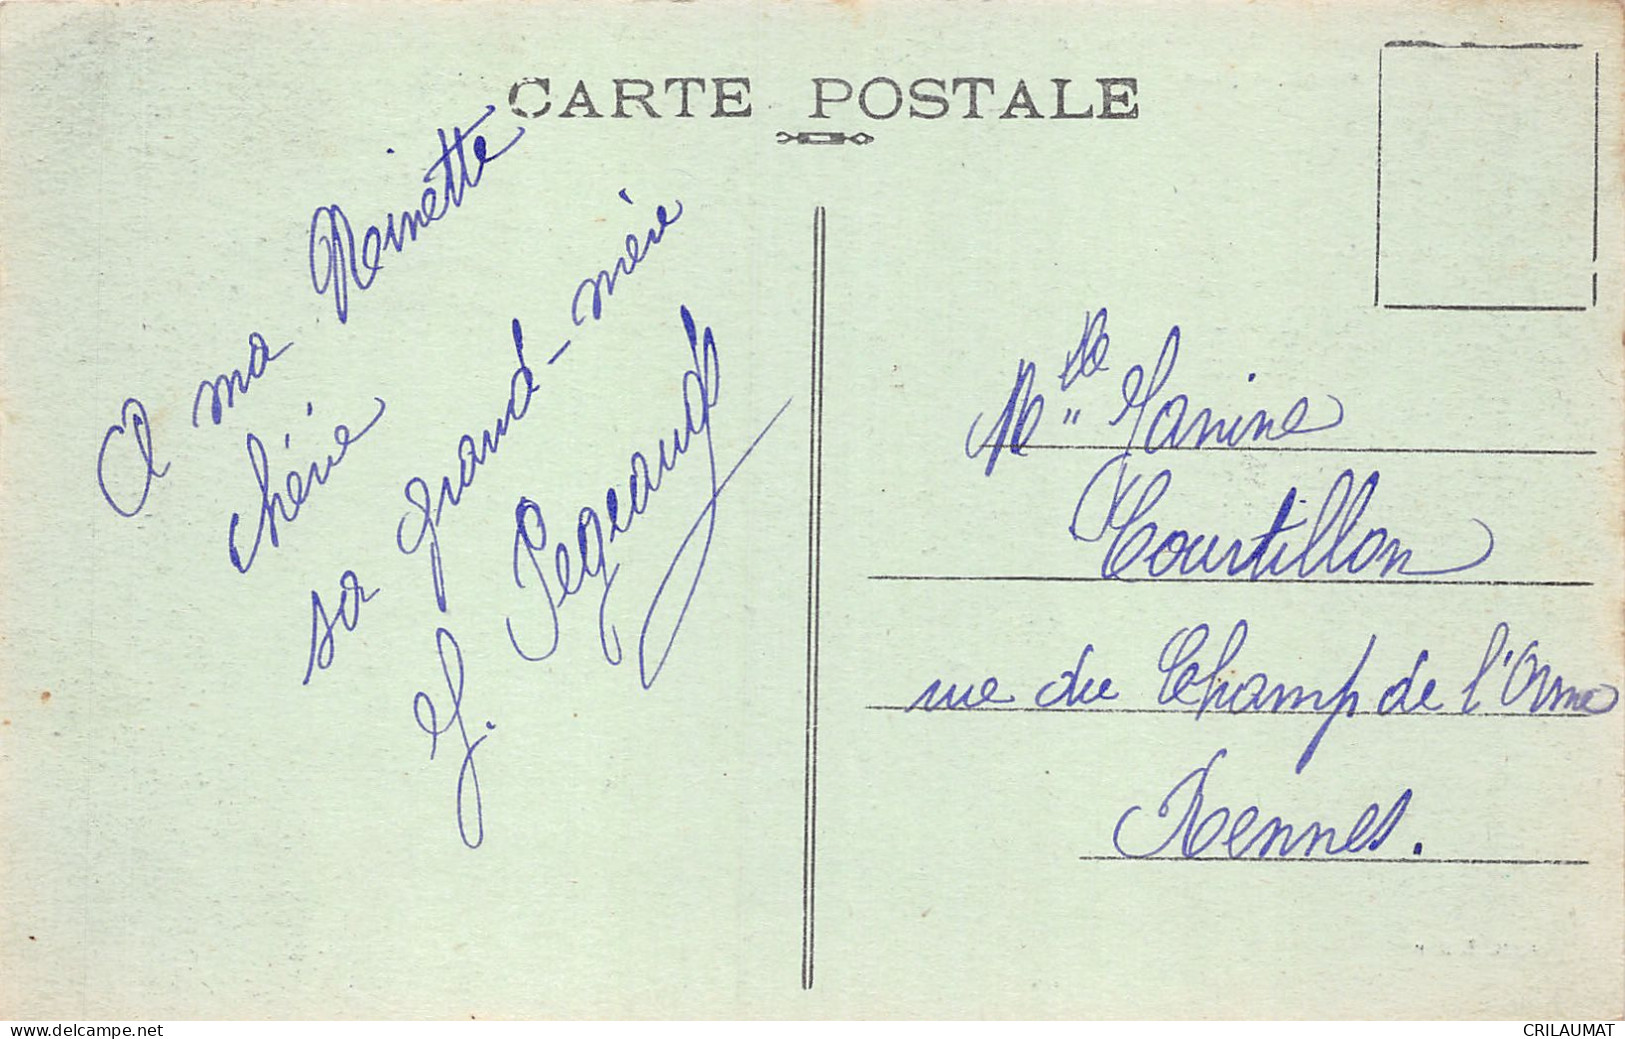 CARTE POSTALE
A ma Reinette
chérie
sa grand-mère
J. Pegeaud
Mlle Janine
Courtillon
rue du Champ de l'Orme
Rennes.
www.delcampe.net
CRILAUMAT